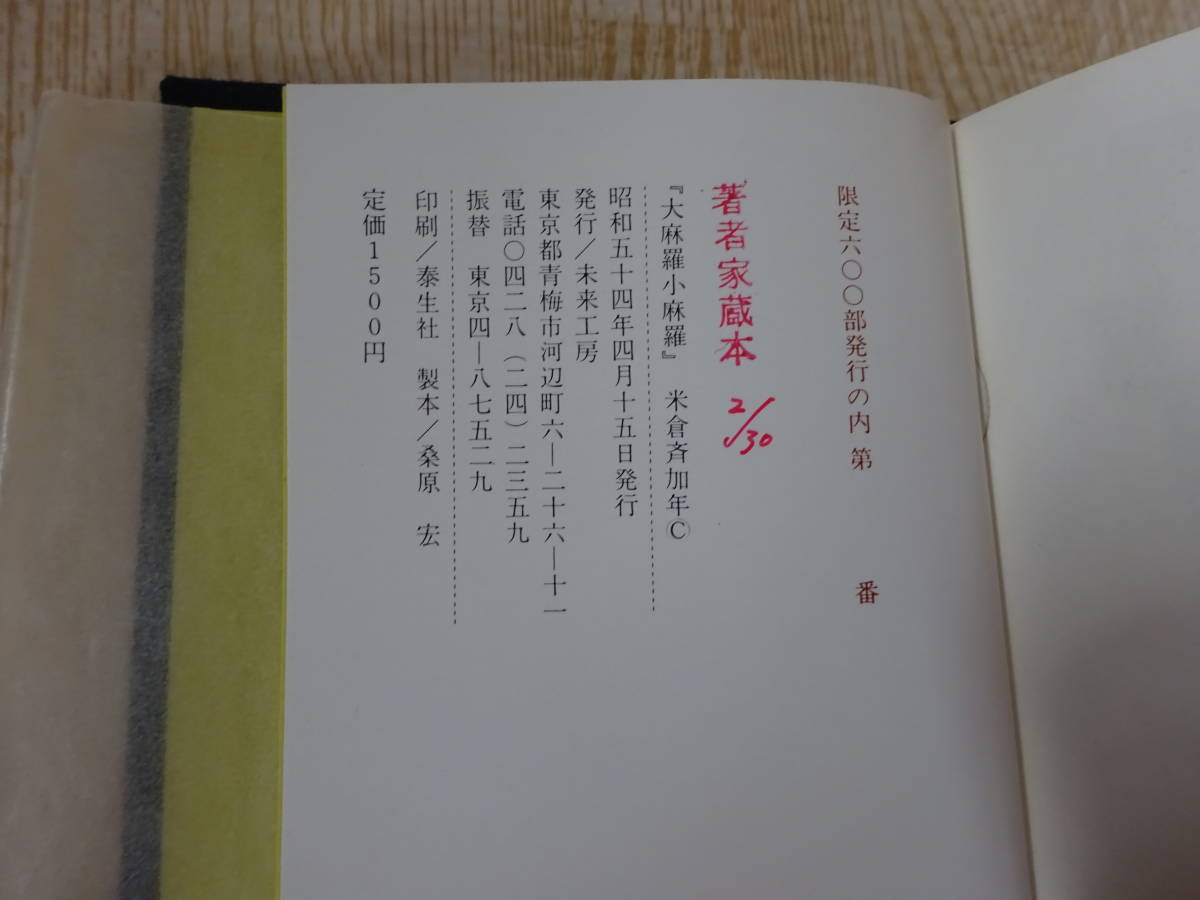 限定六〇〇部発行の内 第 番
著者家蔵本 2/30
『大麻羅小麻羅』 米倉斉加年Ⓒ
昭和五十四年四月十五日発行
発行/未来工房
東京都青梅市河辺町六―二十六―十一
電話〇四二八(二四)二三五九
振替 東京四―八七五二九
印刷/泰生社 製本/桑原 宏
定価1500円